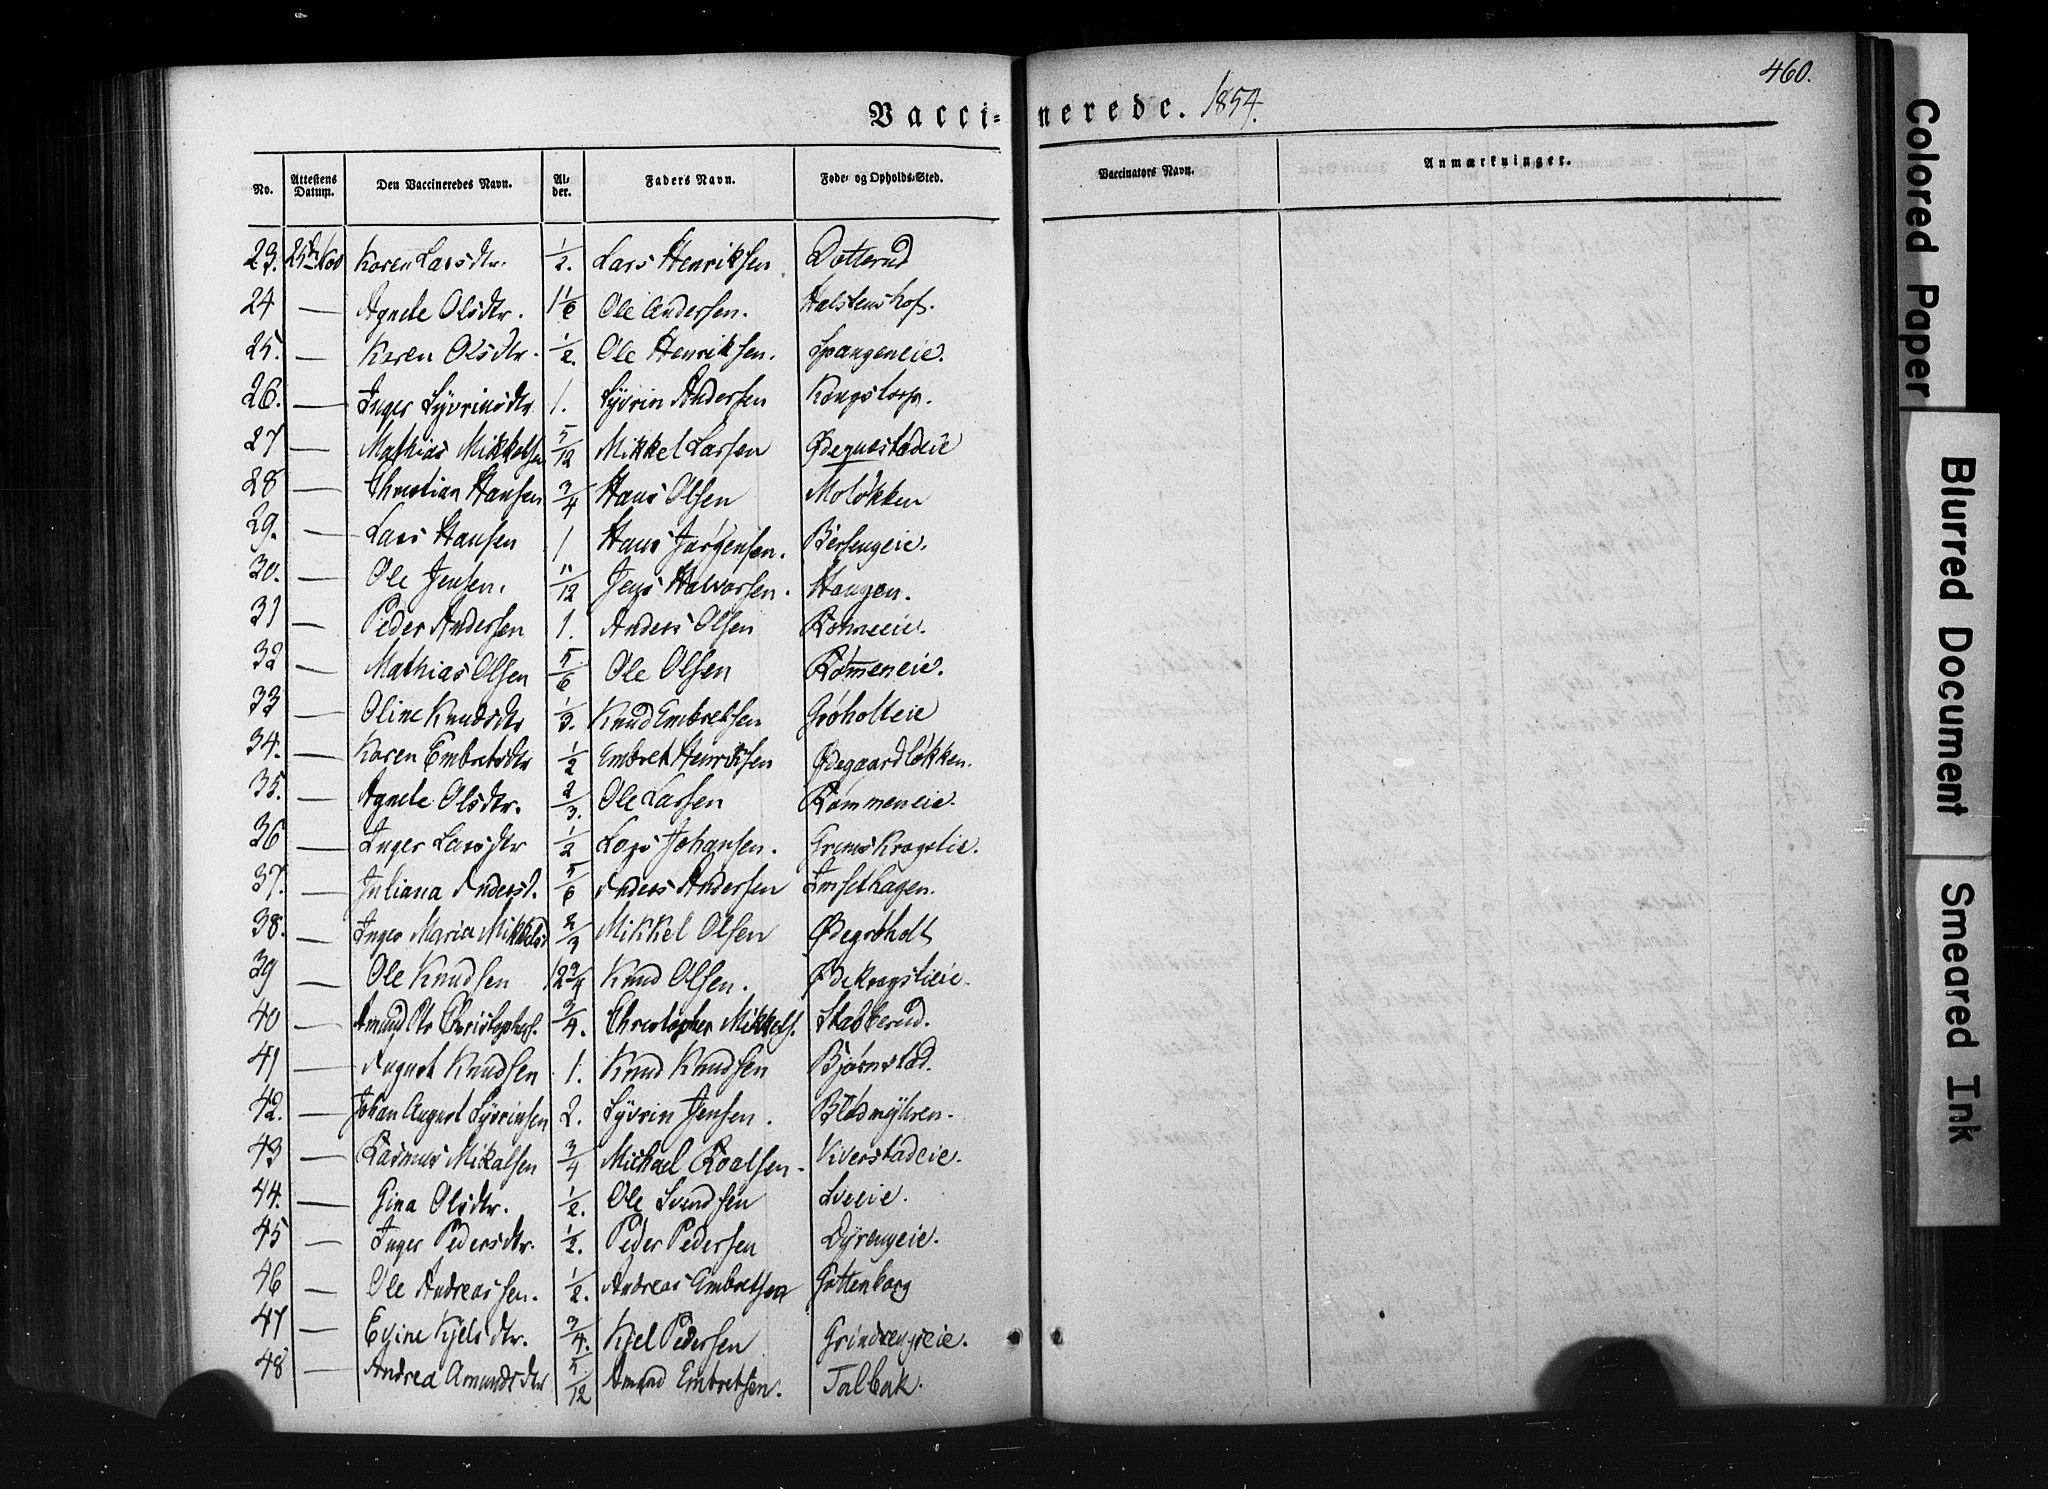 460.
Vacci-nerede. 1854.
No. Attestens Datum. Den Vaccineredes Navn. Al-der. Faders Navn. Føde- og Opholds-Sted. Vaccinators Navn. Anmærkninger.
23. Karen Larsdtr. 1/2. Lars Henriksen Dotterud
24 — Agnete Olsdtr. 1 1/6 Ole Andersen. Halstenshof.
25. — Karen Olsdtr. 1/2. Ole Henriksen. Spangeneie.
26. — Inger Syvrinsdtr 1. Syvrin Andersen Kongstorp.
27 — Mathias Mikkelsen 5/12 Mikkel Larsen Ødegnestadeie
28 — Christian Hansen 3/4 Hans Olsen Moløkken
29. — Lars Hansen 1 Hans Jørgensen. Berfengeie.
30. — Ole Jensen. 11/12 Jens Halvorsen. Haugen.
31 — Peder Andersen 1. Anders Olsen
32 — Mathias Olsen 5/6 Ole Olsen Rømeneie.
33 — Oline Knudsdtr 1/3. Knud Embretsen Grøholteie
34. — Karen Embretsdtr 1/2 Embret Henriksen Ødegaardløkken.
35. — Agnete Olsdtr. 2/3. Ole Larsen Rømmeneie.
36 — Inger Larsdtr 1/2 Lars Johansen. Grimskrogeie.
37. — Juliana Andersd. 5/6 Anders Andersen Imselhagen.
38. — Inger Maria Mikkelsd 2/3 Mikkel Olsen Ødegrøholt
39 — Ole Knudsen 12 3/4 Knud Olsen.
40 — Amund Ols Christophers. 3/4. Christopher Mikkels. Stabberud.
41 — August Knudsen 1. Knud Knudsen Bjørnstad.
42. — Johan August Syvrinsen 2. Syvrin Jensen. Blodmyhren.
43 — Rasmus Mikalsen 3/4 Michael Roalsen. Viverstadeie.
44. — Gina Olsdtr. 1/2. Ole Svendsen Sveeie.
45 — Inger Pedersdtr. 1/2. Peder Pedersen Dyrengeie.
46 — Ole Andreassen. 1/2. Andreas Embretsen Gøttenborg
47 — Eline Kjelsdtr. 3/4. Kjel Pedersen Grindrengseie.
48 — Andrea Amundsdtr 5/12 Amund Embretsen. Talbak.
Colored Paper
Blurred Document
Smeared Ink